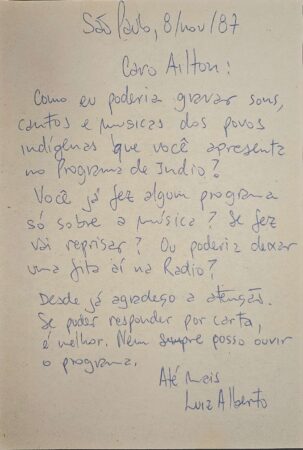 São Paulo, 8/nov/87
Caro Ailton:
Como eu poderia gravar sons,
cantos e músicas dos povos
indígenas que você apresenta
no Programa de Indio?
Você já fez algum programa
só sobre a música? Se fez
vai reprisar? Ou poderia deixar
uma fita aí na Radio?
Desde já agradeço a atenção.
Se puder responder por carta,
é melhor. Nem sempre posso ouvir
o programa.
Até mais
Luiz Alberto